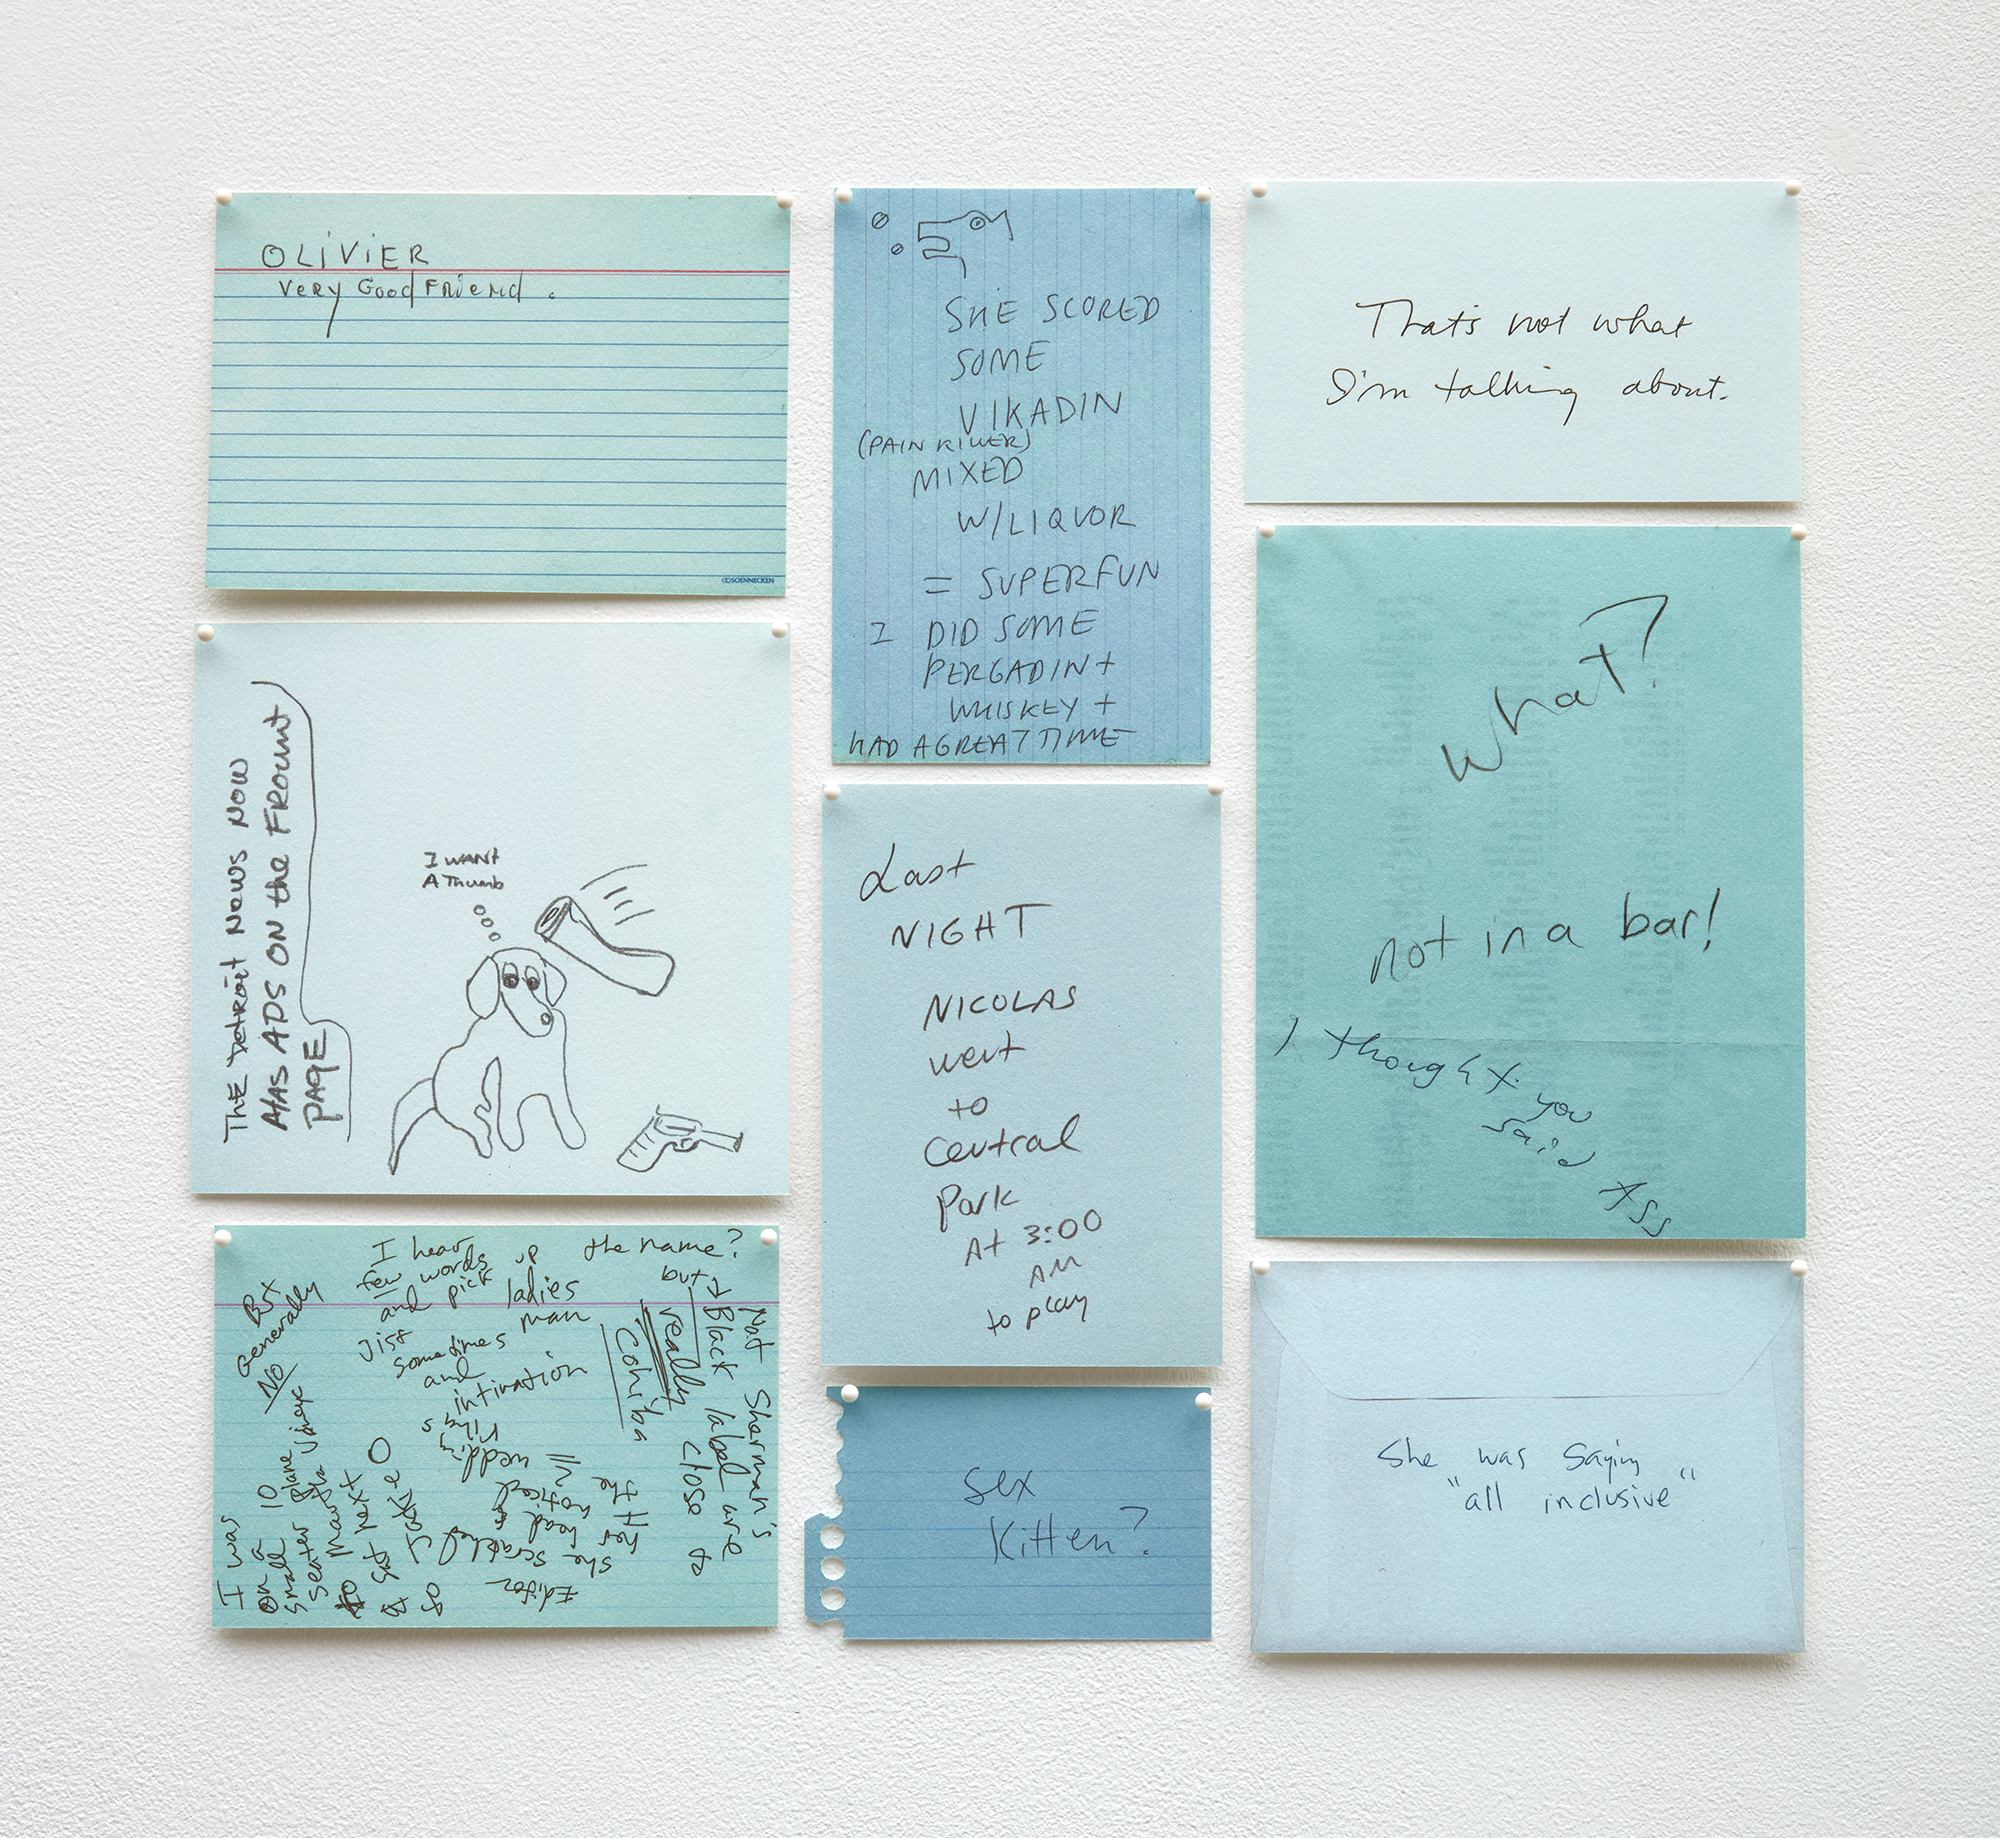 OLIVIER
VERY GOOD FRIEND.
SOENNECKEN
THE Detroit News NOW
HAS ADS ON the FROUNT
PAGE
I WANT
A Thumb
I hear
few words
and pick up
ladies
man
the name?
but
Black label are
close to
really
Cohiba
Nat Sherman's
But
Generally
NO
Jist
sometimes
and
intimation
I was
on a 10
small plane
seater
Martha
next
Editor
She scratched
her head
the noticed
wedding
SHE SCORED
SOME
VIKADIN
(PAIN KILLER)
MIXED
W/LIQUOR
= SUPERFUN
I DID SOME
PERGADIN +
WHISKEY +
HAD A GREAT TIME
Last
NIGHT
NICOLAS
went
to
Central
Park
At 3:00
AM
to play
sex
kitten?
Thats not what
I'm talking about.
what?
not in a bar!
I thought you
said Ass
She was saying
"all inclusive"